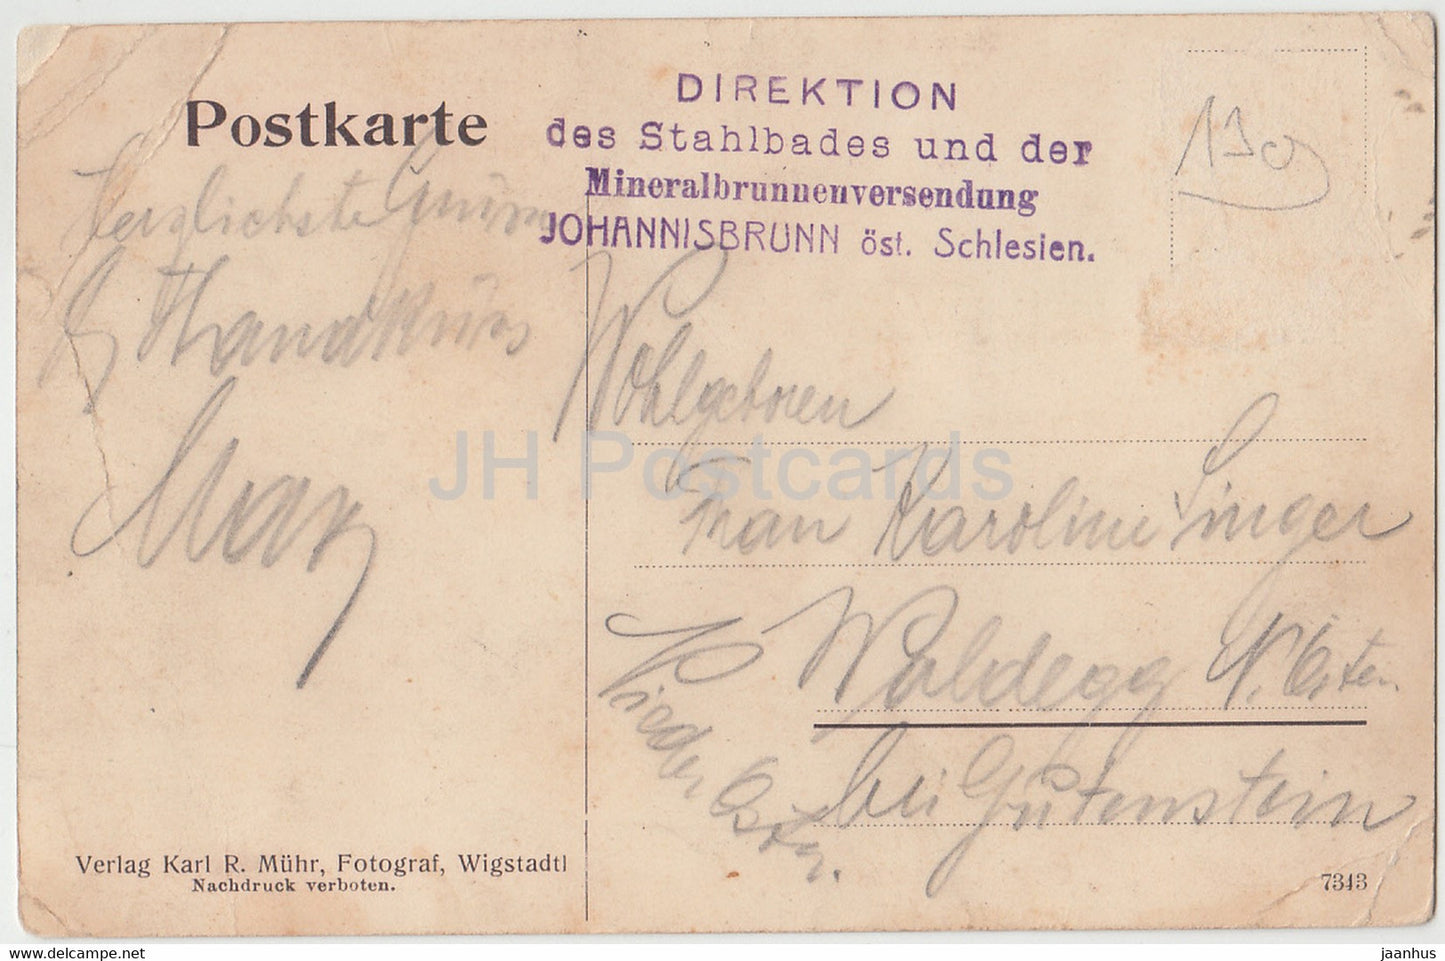 Postkarte
DIREKTION
des Stahlbades und der
Mineralbrunnenversendung
JOHANNISBRUNN öst. Schlesien.
130
Herzlichste Grüsse
Handkuss
Max
Wohlgeboren
Frau Karoline Singer
Waldegg N. Östen.
bei Gutenstein
Nieder
Östr.
JH Postcards
Verlag Karl R. Mühr, Fotograf, Wigstadtl
Nachdruck verboten.
7343
https://www.play-cards.com/store
jaanhus